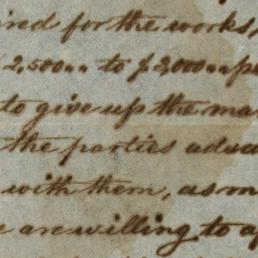 ired for the works,
$2,500.. to $3,000.. p
to give up the ma
the parties advan
with them, as m
e are willing to a